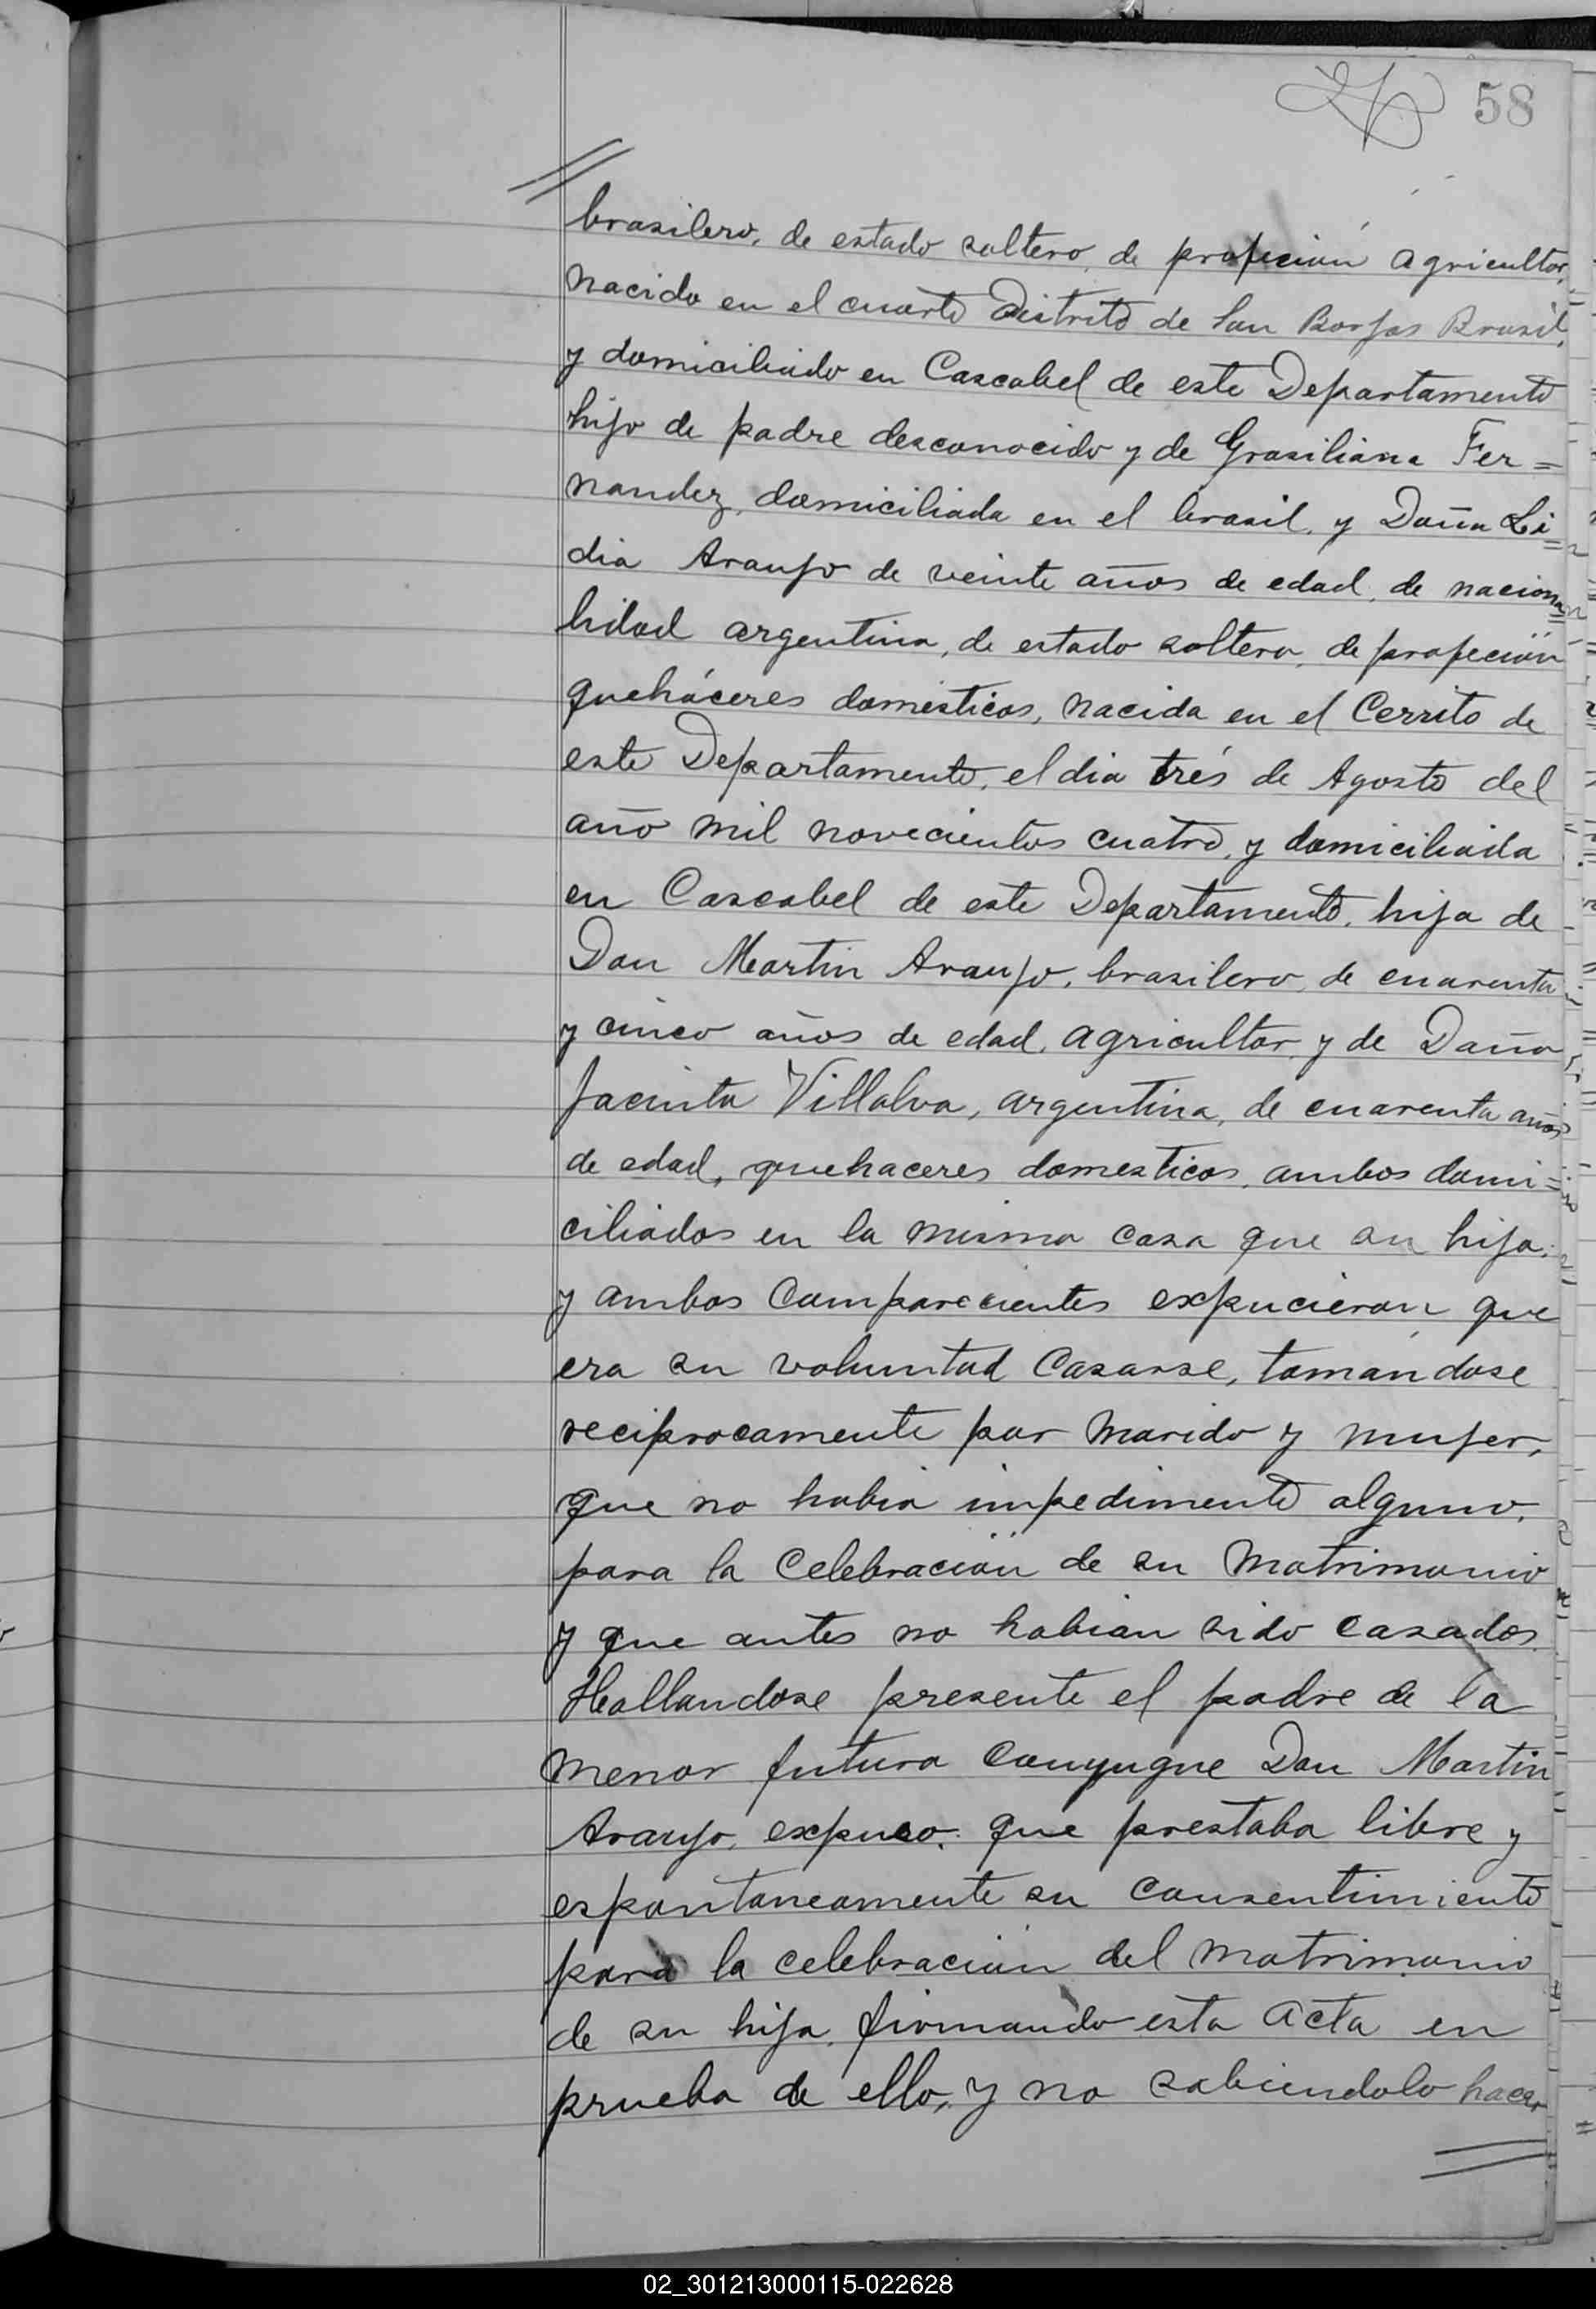 58
brasilero, de estado soltero, de profeción agricultor,
nacido en el cuarto Distrito de San Borjas Brasil,
y domiciliado en Cascabel de este Departamento
hijo de padre desconocido y de Grasiliana Fer=
nandez, domiciliada en el brasil, y Doña Li=
dia Araujo de veinte años de edad, de naciona=
lidad argentina, de estado soltera, de profeción
queháceres domésticos, nacida en el Cerrito de
este Departamento, el dia trés de Agosto del
año mil novecientos cuatro, y domiciliada
en Cascabel de este Departamento, hija de
Don Martin Araujo, brasilero, de cuarenta
y cinco años de edad, agricultor, y de Doña
Jacinta Villalva, argentina, de cuarenta años
de edad, quehaceres domesticos, ambos domi=
ciliados en la misma casa que su hija,
y ambos comparecientes expucieron que
era su voluntad Casarse, tomandose
reciprocamente por marido y mujer,
que no habia impedimento alguno,
para la celebración de su Matrimonio
y que antes no habian sido casados.
Hallandose presente el padre de la
menor futura conyugue Don Martin
Araujo, expuso: que prestaba libre y
espontaneamente su consentimiento
para la celebración del matrimonio
de su hija, firmando esta acta en
prueba de ello, y no sabiendolo hacer
02_301213000115-022628